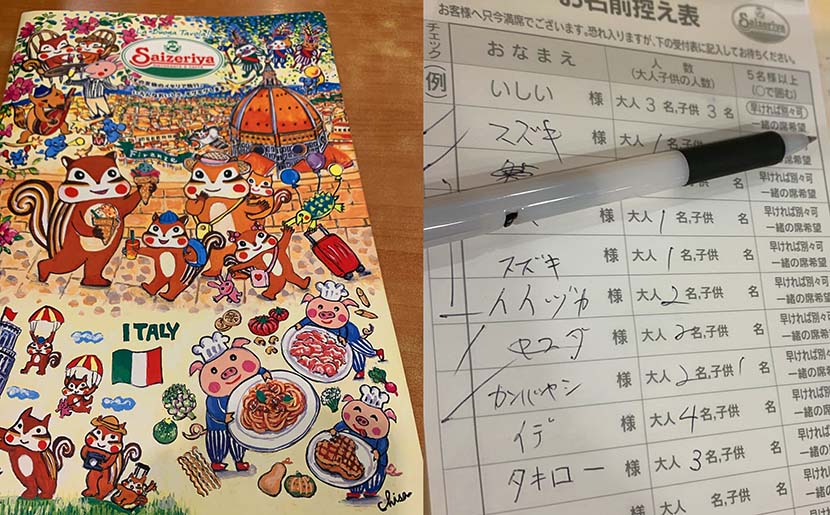 Buona Tavola!
Saizeriya
Firenze
ITALY
chisa
お名前控え表
Saizeriya
お客様へ只今満席でございます。恐れ入りますが、下の受付表に記入してお待ちください。
チェック おなまえ 人数 (大人子供の人数) 5名様以上 (○で囲む)
(例) いしい 様 大人 3 名,子供 3 名 早ければ別々可 一緒の席希望
スズキ 様 大人 1 名,子供
名 早ければ別々可 一緒の席希望
様 大人 1 名,子供 名 早ければ別々可 一緒の席希望
スズキ 様 大人 1 名,子供 名 早ければ別々可 一緒の席希望
イイヅカ 様 大人 2 名,子供 名 早ければ別々可 一緒の席希望
様 大人 2 名,子供 名 早ければ別々可 一緒の席希望
カンバヤシ 様 大人 2 名,子供 1 名 早ければ別々可 一緒の席希望
イデ 様 大人 4 名,子供 名 早ければ別々可 一緒の席希望
タキロー 様 大人 3 名,子供 名 早ければ別々可 一緒の席希望
様 大人 名,子供 名